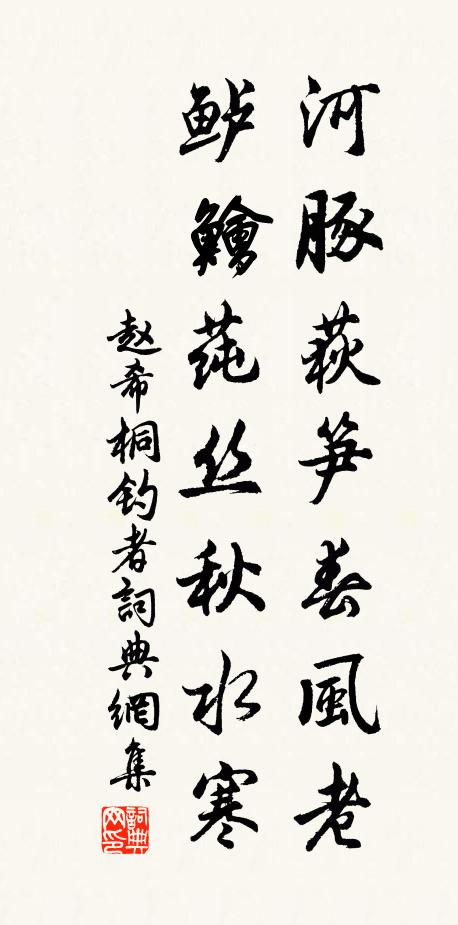 河豚荻笋春風老
鲈鱠莼丝秋水寒
赵希桐钓者詞典網集
詞典网印